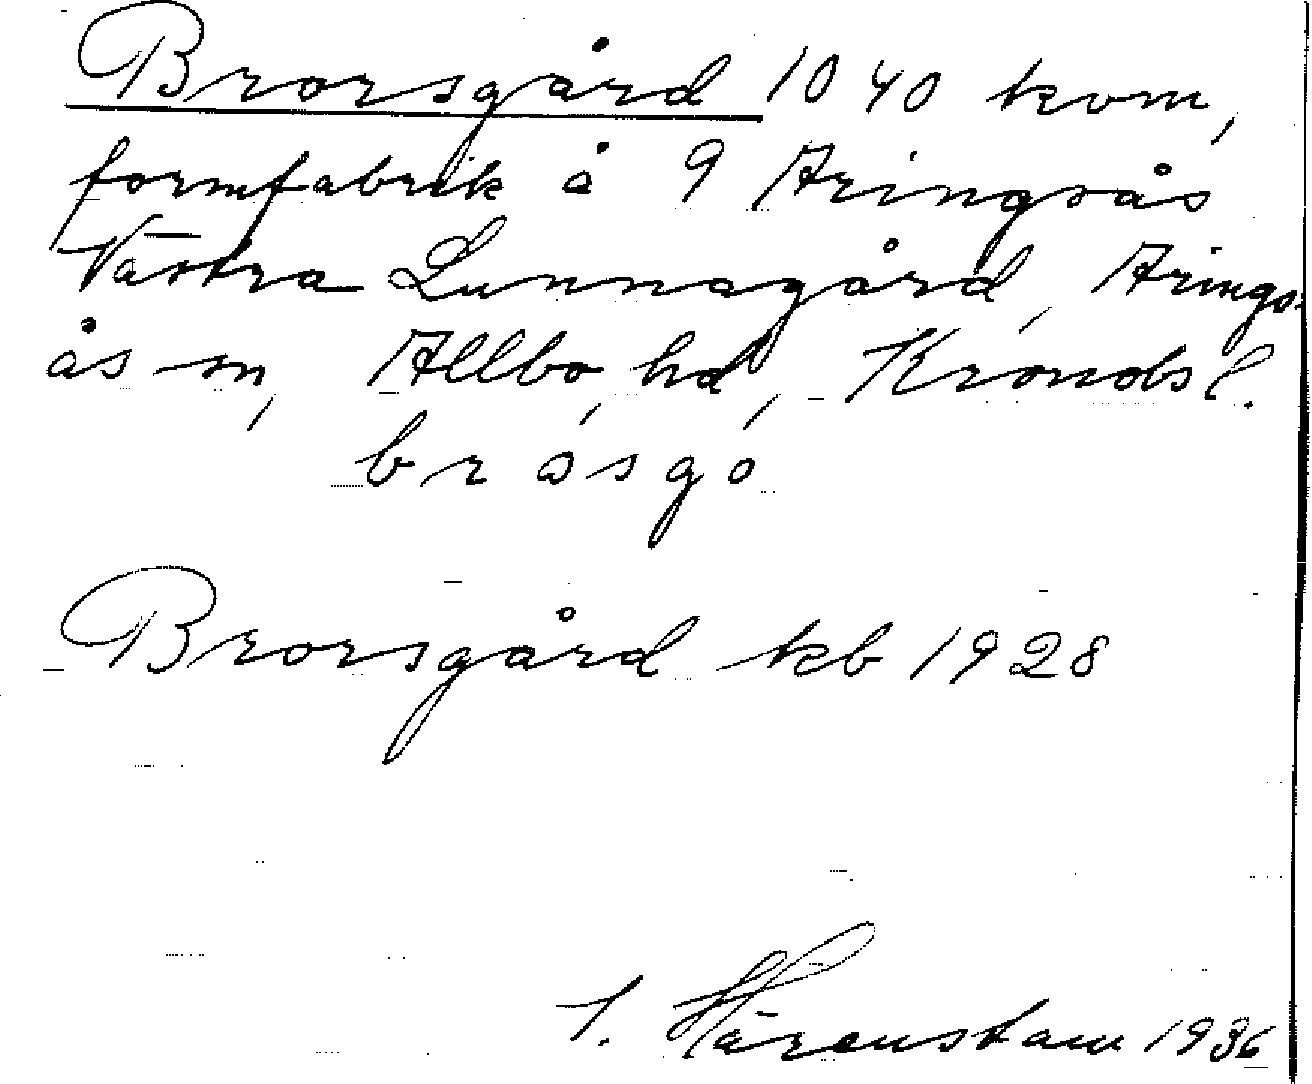 Brorsgård 1040 kvm,
formfabrik å 9 Aringsås
Västra Lunnagård, Arings-
ås sn, Allbo hd, Kronobs l.
brósgó
Brorsgård kb 1928
S. Härenstam 1936